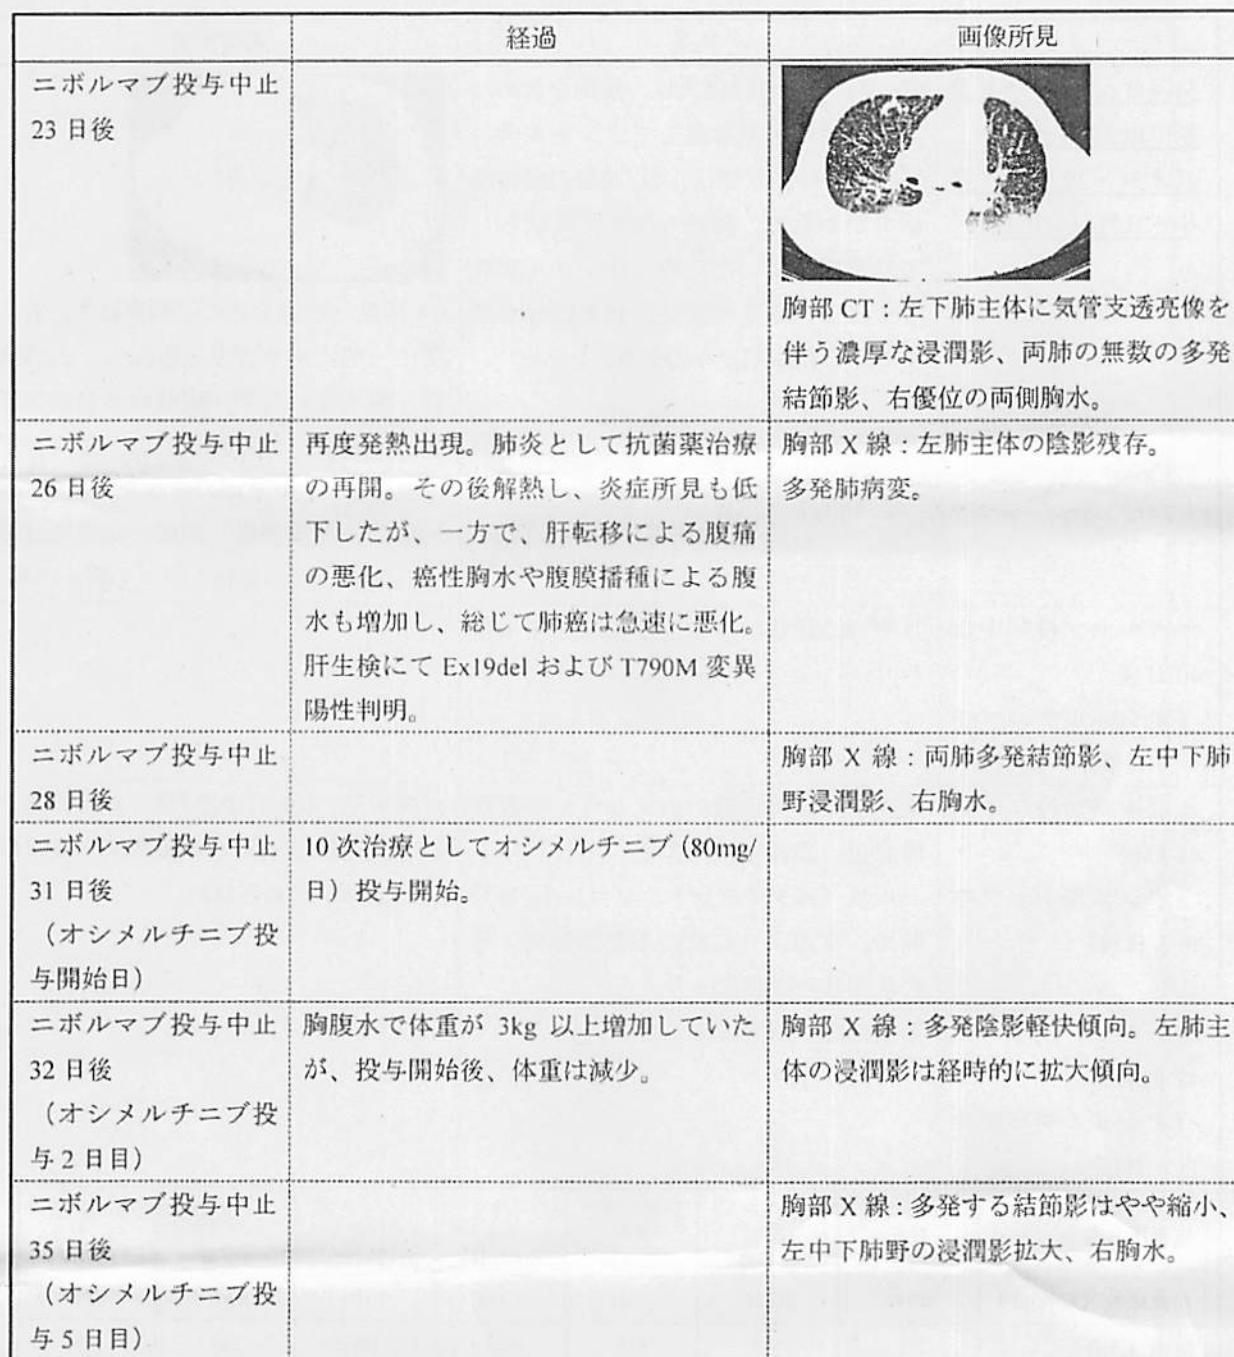 経過
画像所見
ニボルマブ投与中止
23 日後
胸部 CT：左下肺主体に気管支透亮像を
伴う濃厚な浸潤影、両肺の無数の多発
結節影、右優位の両側胸水。
ニボルマブ投与中止
26 日後
再度発熱出現。肺炎として抗菌薬治療
の再開。その後解熱し、炎症所見も低
下したが、一方で、肝転移による腹痛
の悪化、癌性胸水や腹膜播種による腹
水も増加し、総じて肺癌は急速に悪化。
肝生検にて Ex19del および T790M 変異
陽性判明。
胸部 X 線：左肺主体の陰影残存。
多発肺病変。
ニボルマブ投与中止
28 日後
胸部 X 線：両肺多発結節影、左中下肺
野浸潤影、右胸水。
ニボルマブ投与中止
31 日後
（オシメルチニブ投
与開始日）
10 次治療としてオシメルチニブ（80mg/
日）投与開始。
ニボルマブ投与中止
32 日後
（オシメルチニブ投
与 2 日目）
胸腹水で体重が 3kg 以上増加していた
が、投与開始後、体重は減少。
胸部 X 線：多発陰影軽快傾向。左肺主
体の浸潤影は経時的に拡大傾向。
ニボルマブ投与中止
35 日後
（オシメルチニブ投
与 5 日目）
胸部 X 線：多発する結節影はやや縮小、
左中下肺野の浸潤影拡大、右胸水。